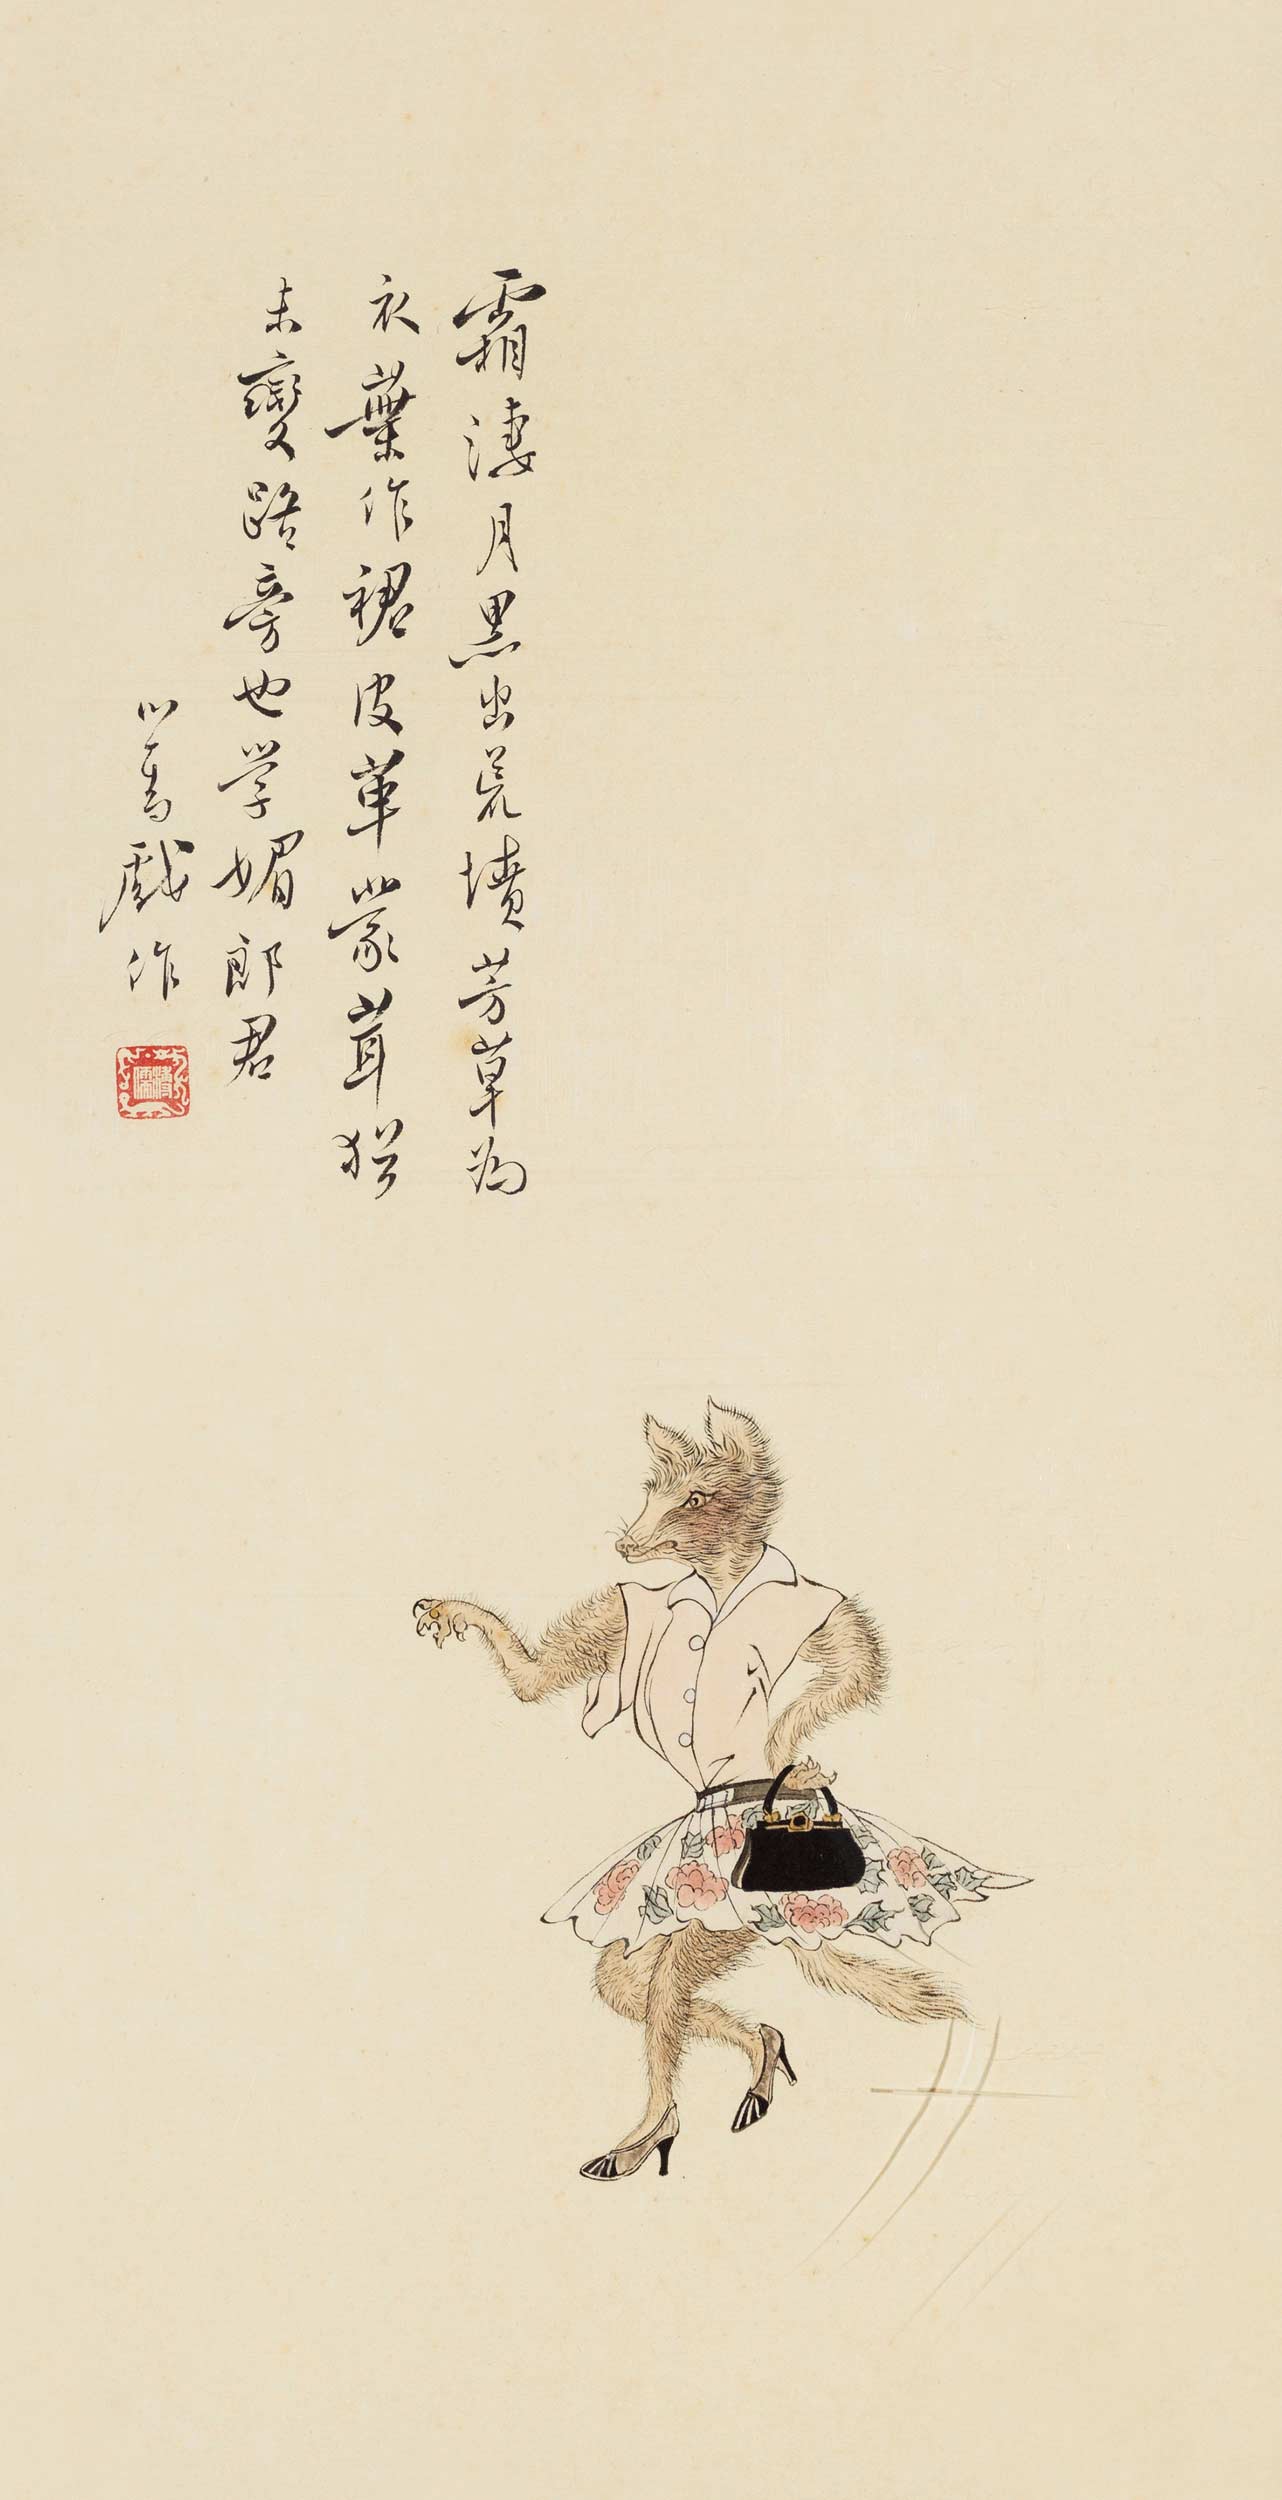 霜淒月黑出荒墳芳草為
衣葉作裙皮革蒙茸猶
未變路旁也學媚郎君
心畬戲作